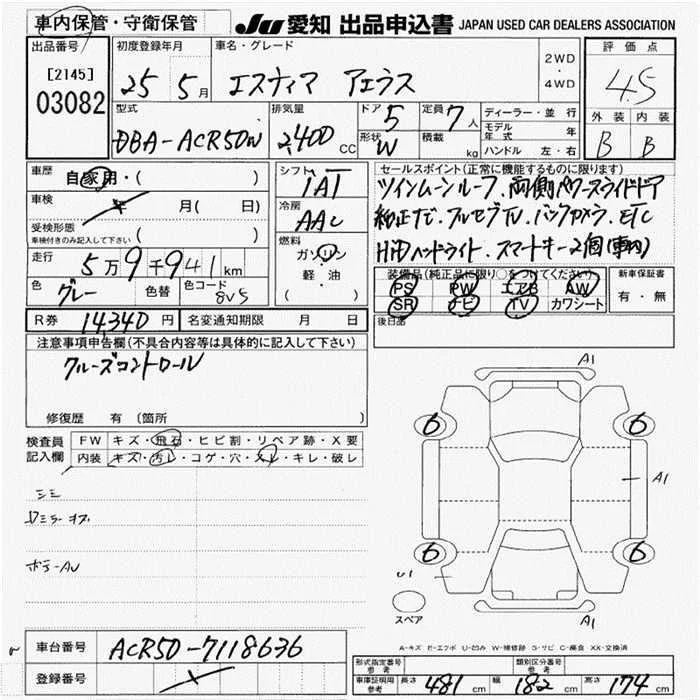 車内保管・守衛保管
JU 愛知 出品申込書 JAPAN USED CAR DEALERS ASSOCIATION
出品番号
[2145]
03082
初度登録年月
25 5月
車名・グレード
エスティマ アエラス
2WD
・
4WD
評価点
4.5
外装 内装
B B
型式
DBA-ACR50W
排気量
2,400 CC
ドア 5
形状 W
定員 7人
積載 kg
ディーラー・並行
モデル年式 年
ハンドル 左・右
車歴
自家用・( )
車検
年 月( 日)
受検形態
車検付きのみ記入して下さい ( )
走行
5万9千941km
色 グレー
色替
色コード 8V5
シフト
IAT
冷房
AAC
燃料
ガソリン
軽・油
( )
セールスポイント(正常に機能するものに限ります)
ツインムーンルーフ.両側パワースライドドア
純正ナビ.フルセグTV.バックカメラ.ETC
HIDヘッドライト.スマートキー2個(車内)
装備品(純正品に限り○をつけてください)
PS PW エアB AW
SR ナビ TV カワシート
新車保証書
有・無
後日品
R券 14,340円
名変通知期限 月 日
注意事項申告欄(不具合内容等は具体的に記入して下さい)
クルーズコントロール
修復歴 有(箇所 )
検査員
記入欄
FW キズ・飛石・ヒビ割・リペア跡・X要
内装 キズ・汚レ・コゲ・穴・スレ・キレ・破レ
シミ
ボラーAU
A1
6 6
A1
6 6
U1
スペア
A1
A-キズ E-エクボ U-凹み W-補修跡 S-サビ C-腐食 XX-交換済
車台番号 ACR50-7118636
登録番号
形式指定番号
参考
類別区分番号
参考
車庫証明用
参考
長さ 481 cm 幅 182 cm 高さ 174 cm